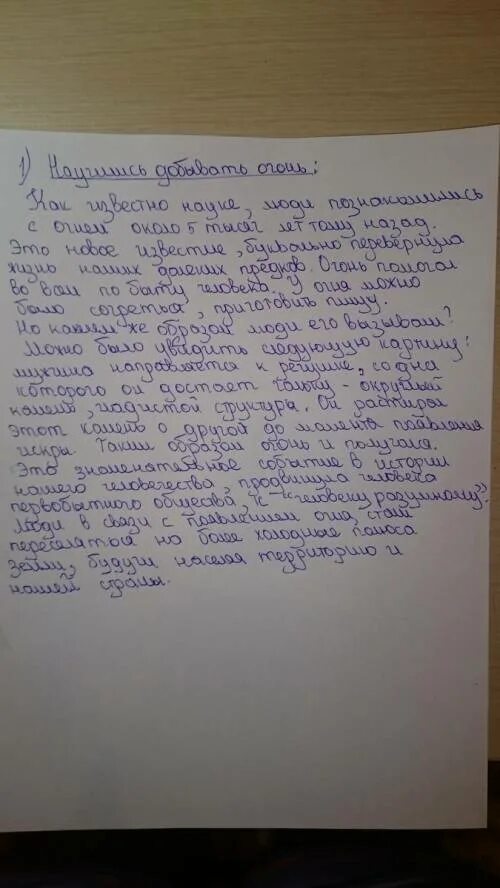 1) Научились добывать огонь:
Как известно науке, люди познакомились
с огнем около 5 тысяч лет тому назад.
Это новое известие, буквально перевернула
жизнь наших далеких предков. Огонь помогал
во всем по быту человека. У огня можно
было согреться, приготовить пищу.
Но каким же образом люди его вызывали?
Можно было увидить следующую картину:
мужчина направляется к речушке, со дна
которого он достает гальку - округлый
камень, гладистой структуры. Он растирал
этот камень о другой до момента появления
искры. Таким образом огонь и получался.
Это знаменательное событие в истории
нашего человечества, продвинула человека
первобытного общества, к "человеку разумному".
Люди в связи с появлением огня, стали
переселяться на более холодные полюса
земли, будущи населяя территорию и
нашей страны.